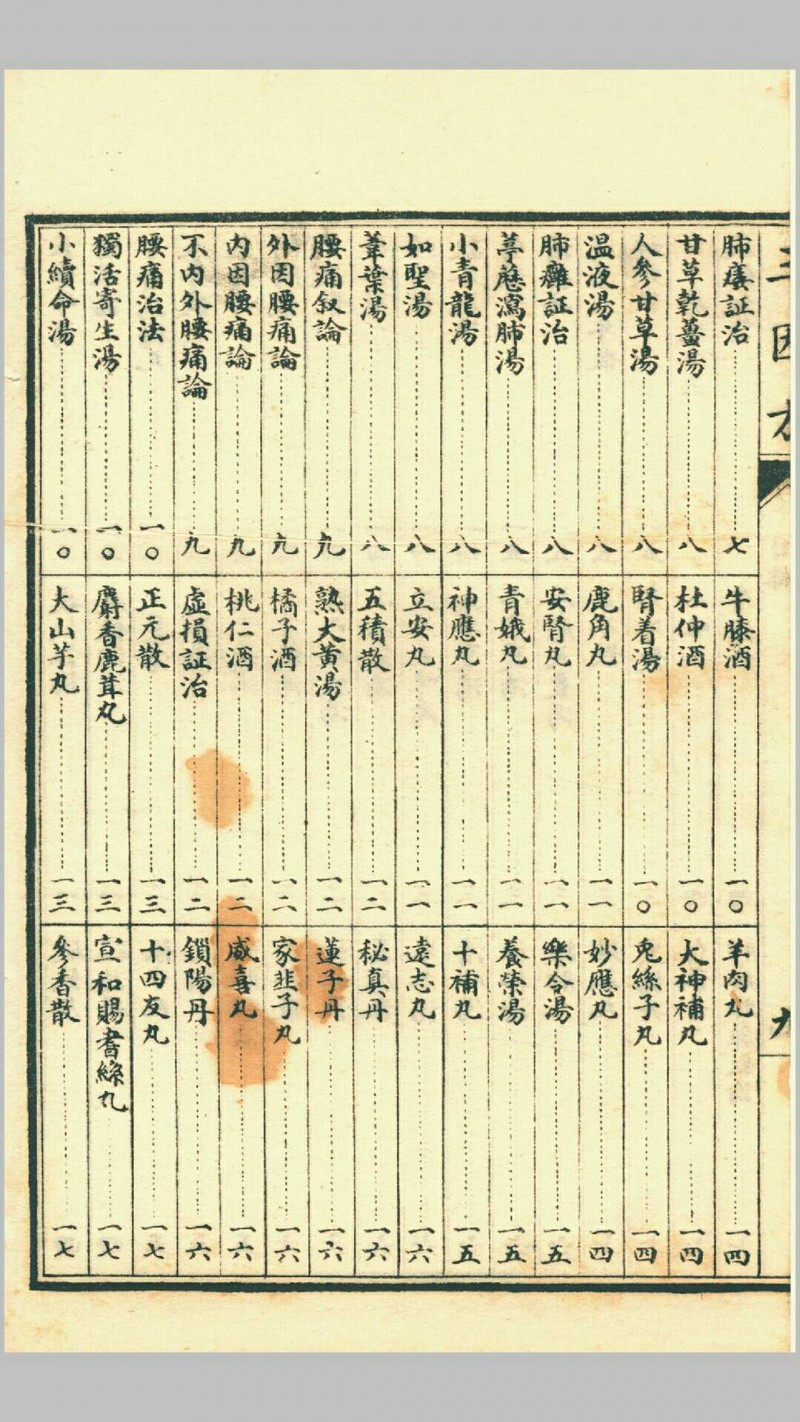 三因方
九
肺痿証治……七
甘草乾薑湯……八
人參甘草湯……八
温液湯……八
肺癰証治……八
葶藶瀉肺湯……八
小青龍湯……八
如聖湯……八
葦葉湯……八
腰痛叙論……九
外因腰痛論……九
内因腰痛論……九
不内外腰痛論……九
腰痛治法……一〇
獨活寄生湯……一〇
小續命湯……一〇
牛膝酒……一〇
杜仲酒……一〇
腎着湯……一〇
鹿角丸……一一
安腎丸……一一
青娥丸……一一
神應丸……一一
立安丸……一一
五積散……一二
熟大黄湯……一二
橘子酒……一二
桃仁酒……一二
虛損証治……一二
正元散……一三
麝香鹿茸丸……一三
大山芋丸……一三
羊肉丸……一四
大神補丸……一四
兎絲子丸……一四
妙應丸……一四
樂令湯……一五
養榮湯……一五
十補丸……一五
遠志丸……一六
秘真丹……一六
蓮子丹……一六
家韮子丸……一六
威喜丸……一六
鎖陽丹……一六
十四友丸……一七
宣和賜耆絲丸……一七
參香散……一七